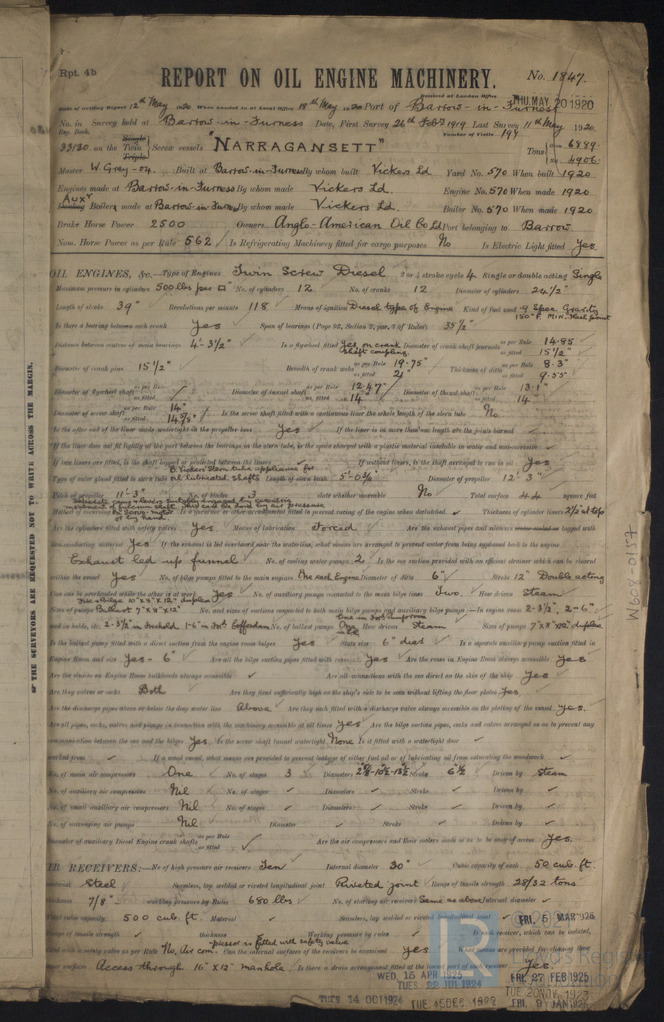 Rpt. 4b
REPORT ON OIL ENGINE MACHINERY.
No. 1847.
Received at London Office
THU. MAY. 20 1920
Date of writing Report 12th May 1920 When handed in at Local Office 18th May 1920 Port of Barrow-in-Furness
No. in Survey held at Barrow-in-Furness Date, First Survey 26th Feby 1919 Last Survey 11th May 1920
Reg. Book. Number of Visits 194
33130 on the Single Twin Triple Screw vessels "NARRAGANSETT" Tons Gross 6889 Net 4906
Master W. Grey Built at Barrow-in-Furness By whom built Vickers Ld Yard No. 570 When built 1920
Engines made at Barrow-in-Furness By whom made Vickers Ld. Engine No. 570 When made 1920
Auxy Boilers made at Barrow-in-Furness By whom made Vickers Ld. Boiler No. 570 When made 1920
Brake Horse Power 2500 Owners Anglo-American Oil Co Ld Port belonging to Barrow
Nom. Horse Power as per Rule 562 Is Refrigerating Machinery fitted for cargo purposes No Is Electric Light fitted Yes
OIL ENGINES, &c.—Type of Engines Twin Screw Diesel 2 or 4 stroke cycle 4 Single or double acting Single
Maximum pressure in cylinders 500 lbs per □" No. of cylinders 12 No. of cranks 12 Diameter of cylinders 24½"
Length of stroke 39" Revolutions per minute 118 Means of ignition Diesel type of Engine Kind of fuel used .9 Spec. Gravity
150° F. Min. Flash point
Is there a bearing between each crank Yes Span of bearings (Page 92, Section 2, par. 7 of Rules) 35½"
Distance between centres of main bearings 4'-3½" Is a flywheel fitted Yes, on crank shaft coupling. Diameter of crank shaft journals as per Rule 14.85 as fitted 15½"
Diameter of crank pins 15½" Breadth of crank webs as per Rule 19.75" as fitted 21" Thickness of ditto as per Rule 8.3" as fitted 9.55"
Diameter of flywheel shaft as per Rule as fitted Diameter of tunnel shaft as per Rule 12.47" as fitted 14" Diameter of thrust shaft as per Rule 13.1" as fitted 14"
Diameter of screw shaft as per Rule 14" as fitted 14⅞" Is the screw shaft fitted with a continuous liner the whole length of the stern tube No
Is the after end of the liner made watertight in the propeller boss Yes If the liner is in more than one length are the joints burned
If the liner does not fit tightly at the part between the bearings in the stern tube, is the space charged with a plastic material insoluble in water and non-corrosive
If two liners are fitted, is the shaft lapped or protected between the liners If without liners, is the shaft arranged to run in oil Yes
Type of outer gland fitted to stern tube Vickers' Stern tube appliance for oil lubricated shafts Length of stern bush 5'-0¾" Diameter of propeller 12'-3"
Pitch of propeller 11'-3" No. of blades 3 state whether moveable No Total surface 44 square feet
or by hand Thickness of cylinder liners
Are the cylinders fitted with safety valves Yes Means of lubrication Forced Are the exhaust pipes and silencers water cooled or lagged with
non-conducting material Yes If the exhaust is led overboard near the waterline, what means are arranged to prevent water from being syphoned back to the engine
Exhaust led up funnel No. of cooling water pumps 2 Is the sea suction provided with an efficient strainer which can be cleared
within the vessel Yes No. of bilge pumps fitted to the main engines One each Engine Diameter of ditto 6" Stroke 12" Double acting
Can one be overhauled while the other is at work Yes No. of auxiliary pumps connected to the main bilge lines Two. How driven Steam
Sizes of pumps Bilge 10"x8"x12" duplex Ballast 7"x8"x12" No. and sizes of suctions connected to both main bilge pumps and auxiliary bilge pumps:—In engine room 2-3½", 2-6"
and in holds, etc. 2-3½" in Forehold 1-6" in Ford Cofferdam No. of ballast pumps One How driven Steam Sizes of pumps 7"x8"x12" duplex
Is the ballast pump fitted with a direct suction from the engine room bilges Yes State size 6" diar Is a separate auxiliary pump suction fitted in
Engine Room and size Yes - 6" Are all the bilge suction pipes fitted with roses Yes Are the roses in Engine Room always accessible Yes
Are the sluices on Engine Room bulkheads always accessible Are all connections with the sea direct on the skin of the ship Yes
Are they valves or cocks Both Are they fixed sufficiently high on the ship's side to be seen without lifting the floor plates Yes
Are the discharge pipes above or below the deep water line Above Are they each fitted with a discharge valve always accessible on the plating of the vessel Yes.
Are all pipes, cocks, valves and pumps in connection with the machinery accessible at all times Yes Are the bilge suction pipes, cocks and valves arranged so as to prevent any
communication between the sea and the bilges Yes Is the screw shaft tunnel watertight None Is it fitted with a watertight door
worked from If a wood vessel, what means are provided to prevent leakage of either fuel oil or of lubricating oil from saturating the woodwork
No. of main air compressors One No. of stages 3 Diameters Stroke 6½ Driven by Steam
No. of auxiliary air compressors Nil No. of stages Diameters Stroke Driven by
No. of small auxiliary air compressors Nil No. of stages Diameters Stroke Driven by
No. of scavenging air pumps Nil Diameter Stroke Driven by
Diameter of auxiliary Diesel Engine crank shafts as per Rule as fitted Are the air compressors and their coolers made so as to be easy of access Yes.
IR RECEIVERS:—No of high pressure air receivers Ten Internal diameter 30" Cubic capacity of each 50 cub. ft.
Steel Seamless, lap welded or riveted longitudinal joint Riveted joint Range of tensile strength 28/32 tons
7/8" working pressure by Rules 680 lbs No. of starting air receivers Same as above Internal diameter
Total cubic capacity 500 cub. ft. Material Seamless, lap welded or riveted longitudinal joint
Range of tensile strength thickness Working pressure by rules Is each receiver, which can be isolated,
fitted with a safety valve as per Rule No, Air compressor is fitted with safety valve Can the internal surfaces of the receivers be examined Yes What means are provided for cleaning their
inner surfaces Access through 16"x12" manhole Is there a drain arrangement fitted at the lowest part of each receiver Yes
OF THE SURVEYORS ARE REQUESTED NOT TO WRITE ACROSS THE MARGIN.
W608-0157
FRI. 5 MAR 1926
WED. 15 APR 1925
FRI. 27 FEB 1925
TUES 14 OCT 1924
LR
Lloyd's Register